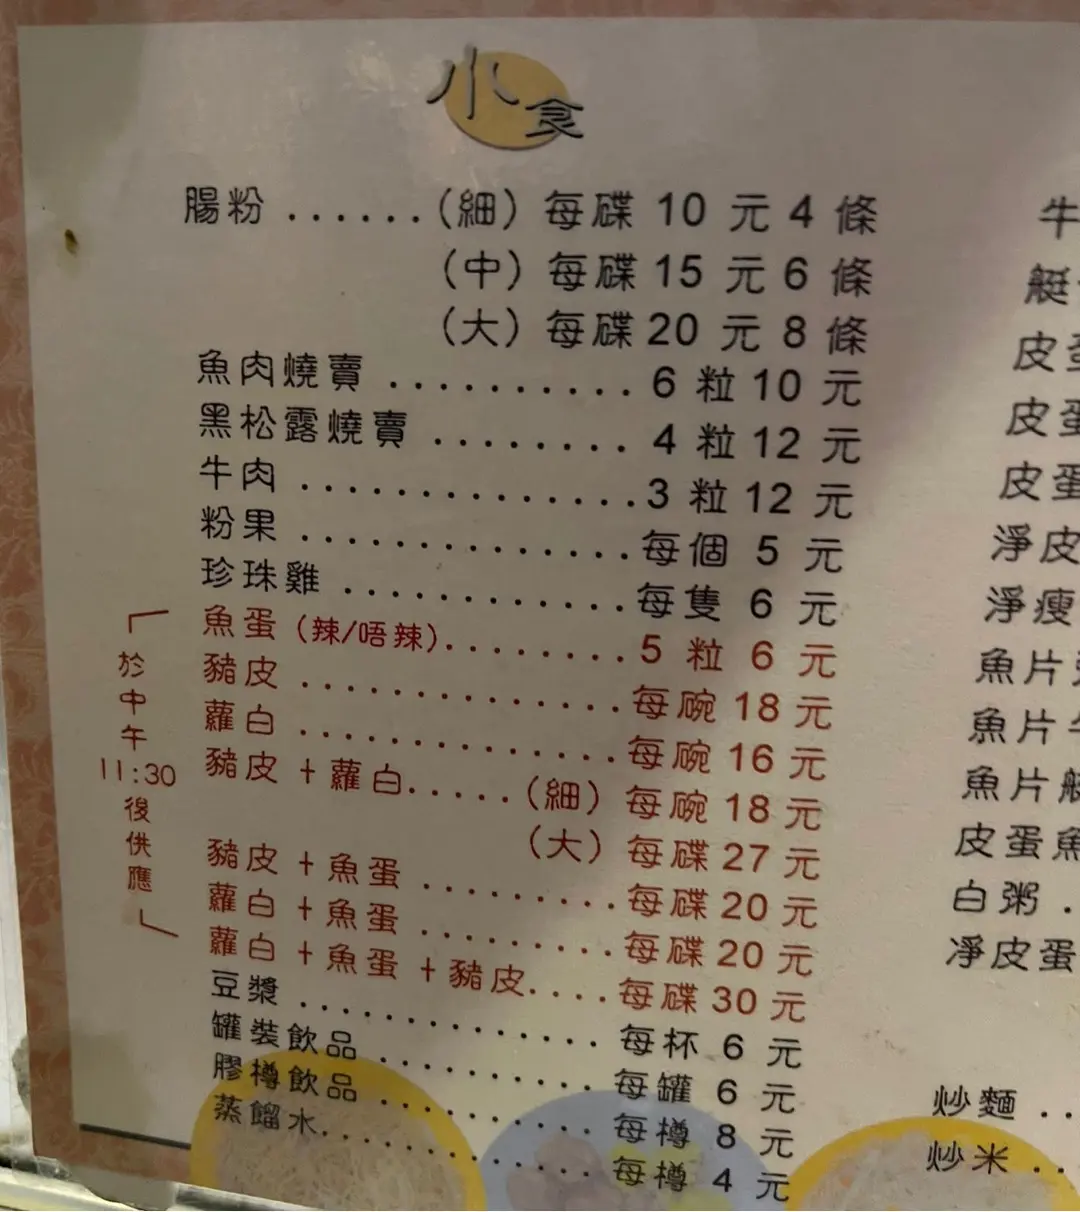 小食
腸粉 ......(細) 每碟 10 元 4 條
(中) 每碟 15 元 6 條
(大) 每碟 20 元 8 條
魚肉燒賣 .......... 6 粒 10 元
黑松露燒賣 ........ 4 粒 12 元
牛肉 ..............3 粒 12 元
粉果 ..............每個 5 元
珍珠雞 ............每隻 6 元
於中午11:30後供應
魚蛋 (辣/唔辣).........5 粒 6 元
豬皮 ..............每碗 18 元
蘿白 ..............每碗 16 元
豬皮 + 蘿白.....(細) 每碗 18 元
(大) 每碟 27 元
豬皮 + 魚蛋 .........每碟 20 元
蘿白 + 魚蛋 .........每碟 20 元
蘿白 + 魚蛋 + 豬皮....每碟 30 元
豆漿 ..............每杯 6 元
罐裝飲品 ..........每罐 6 元
膠樽飲品 ..........每樽 8 元
蒸餾水.............每樽 4 元
牛
艇
皮蛋
皮蛋
皮蛋
淨皮
淨瘦
魚片
魚片牛
魚片艇
皮蛋魚
白粥 .
凈皮蛋
炒麵 ..
炒米 ..